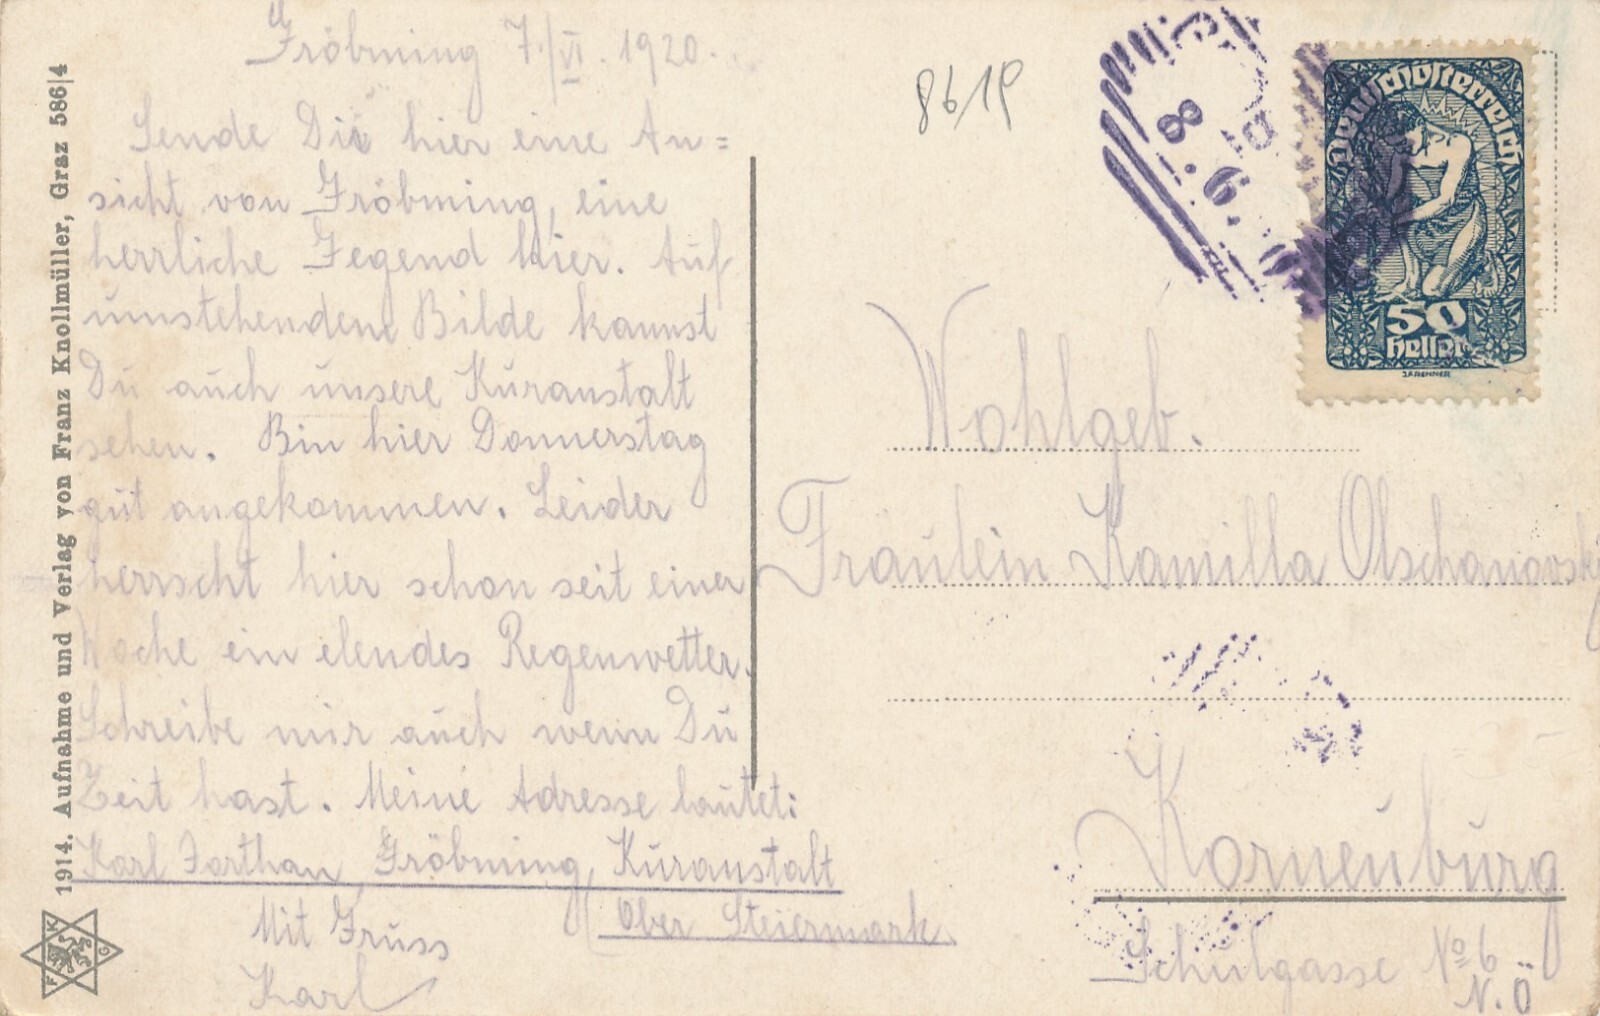 Gröbming 7./VI. 1920.
Sende Dir hier eine An=
sicht von Gröbming, eine
herrliche Gegend hier. Auf
umstehendem Bilde kannst
Du auch unsere Kuranstalt
sehen. Bin hier Donnerstag
gut angekommen. Leider
herrscht hier schon seit einer
Woche ein elendes Regenwetter.
Schreibe mir auch wenn Du
Zeit hast. Meine Adresse lautet:
Karl Gröbming, Kuranstalt
Ober Steiermark.
Mit Gruss
Karl
1914. Aufnahme und Verlag von Franz Knollmüller, Graz 586|4
F K G
8619
8. 6.
Deutschösterreich
50
Heller
J.F.RENNER
Wohlgeb.
Fräulein Kamilla Olschanovsky
Korneuburg
Schulgasse No 6
N.Ö